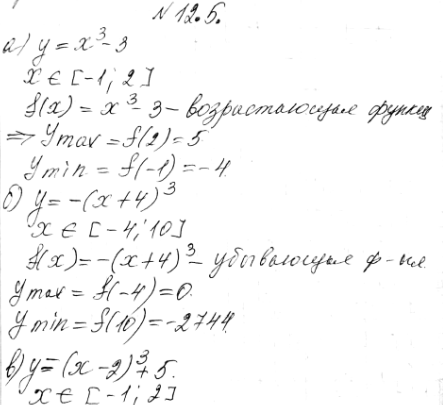 № 12.5.
а) y = x³ - 3
x ∈ [-1; 2]
f(x) = x³ - 3 - возрастающая функц
=> Ymax = f(2) = 5
Ymin = f(-1) = -4.
б) y = -(x + 4)³
x ∈ [-4; 10]
f(x) = -(x+4)³ - убывающая ф-ия.
Ymax = f(-4) = 0.
Ymin = f(10) = -2744.
в) y = (x - 2)³ + 5.
x ∈ [-1; 2]